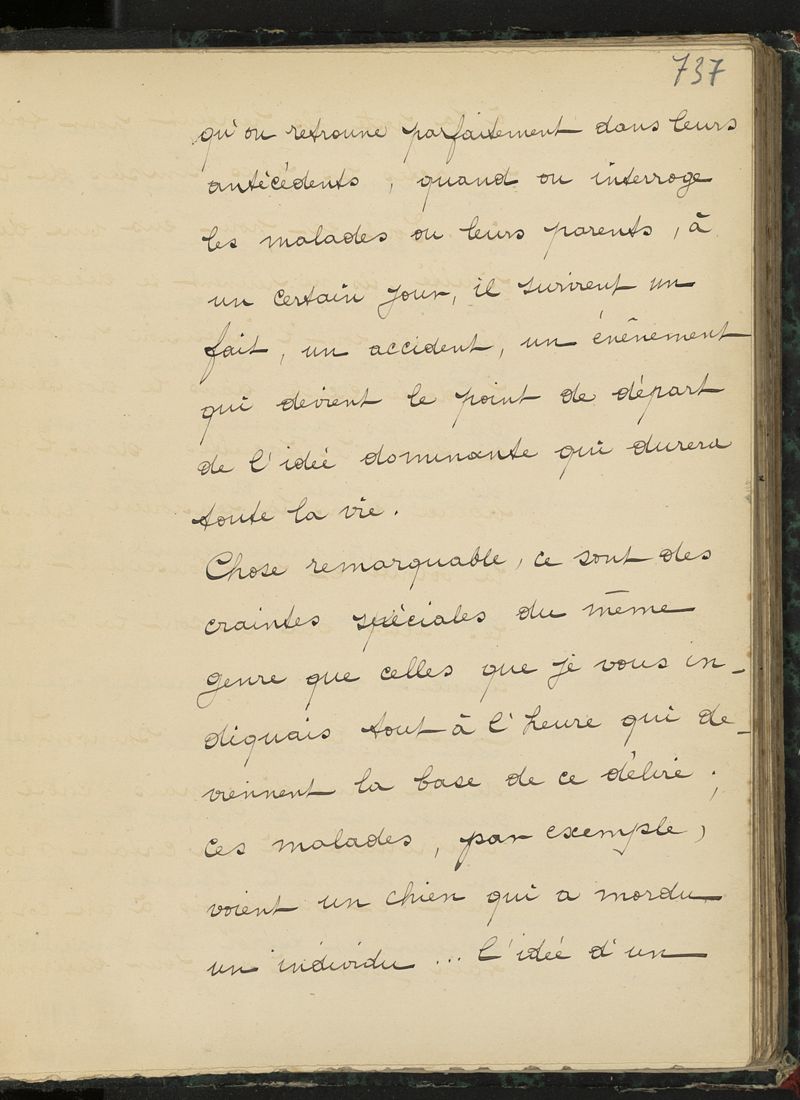 737
qu'on retrouve parfaitement dans leurs
antécédents, quand on interroge
les malades ou leurs parents, à
un certain jour, il survient un
fait, un accident, un évênement
qui devient le point de départ
de l'idée dominante qui durera
toute la vie.
Chose remarquable, ce sont des
craintes spéciales du même
genre que celles que je vous in-
diquais tout à l'heure qui de-
viennent la base de ce délire ;
ces malades, par exemple,
voient un chien qui a mordu
un individu ... l'idée d'un